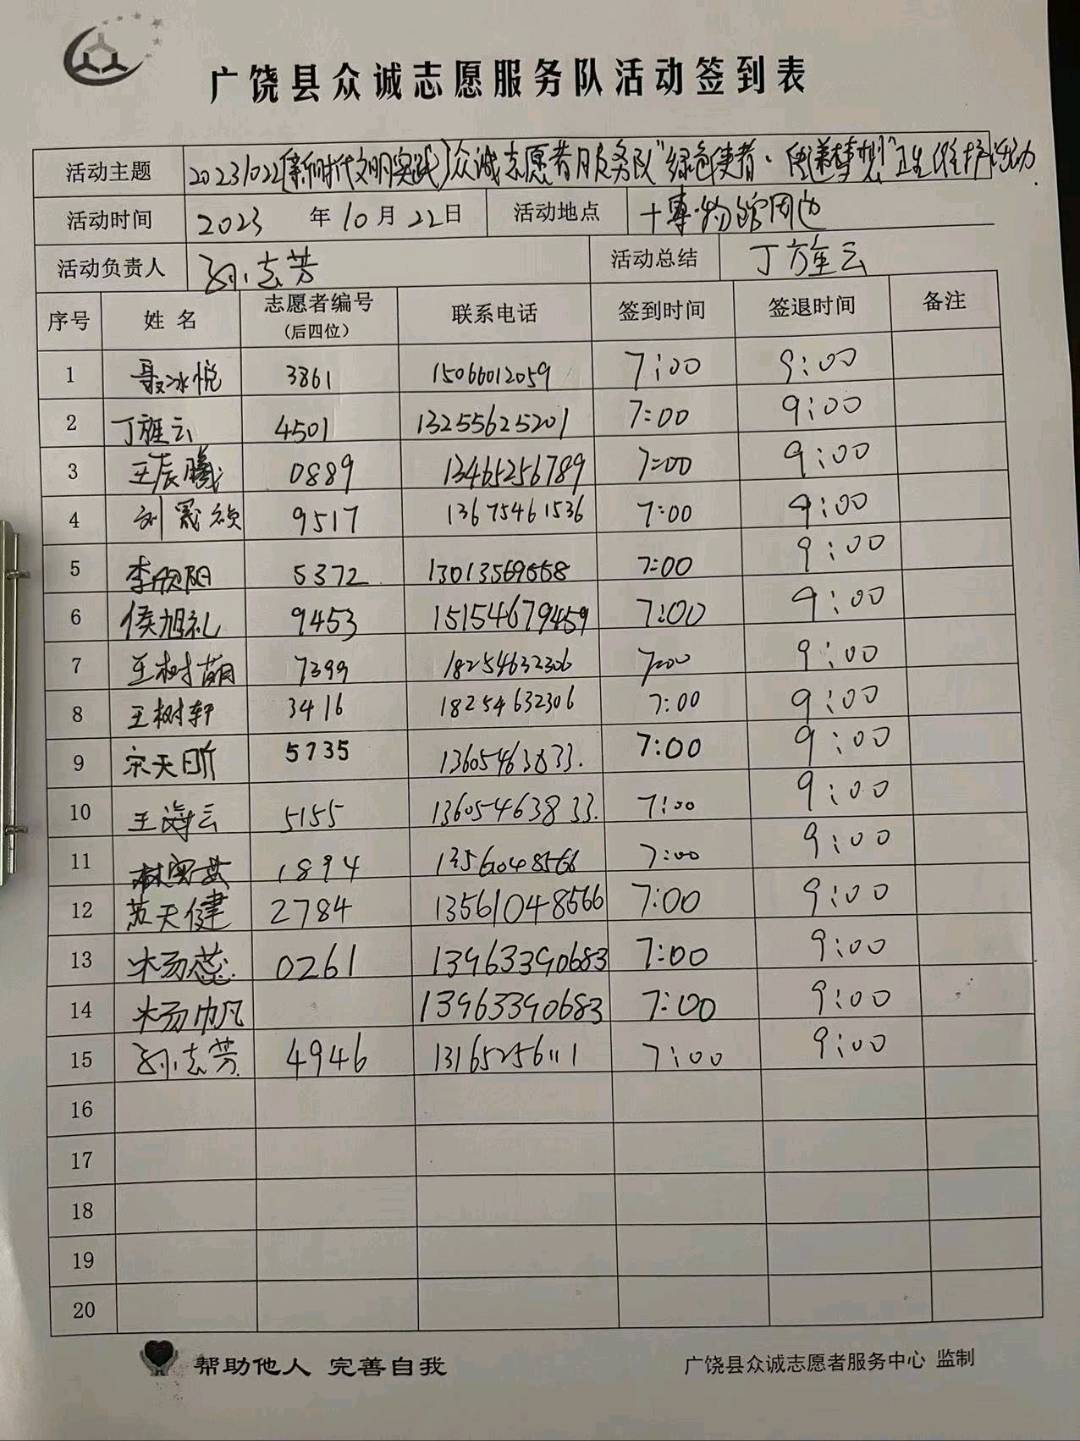 广饶县众诚志愿服务队活动签到表
活动主题 20231022[新时代文明实践]众诚志愿者服务队“绿色使者·传递梦想”卫生维护活动
活动时间 2023 年 10 月 22 日 活动地点 十博物馆周边
活动负责人 孙志芳 活动总结 丁旌云
序号 姓名 志愿者编号 (后四位) 联系电话 签到时间 签退时间 备注
1 聂冰悦 3861 15066012059 7:00 9:00
2 丁旌云 4501 13255625201 7:00 9:00
3 王辰曦 0889 13465256789 7:00 9:00
4 刘晟祯 9517 13675461536 7:00 9:00
5 李欣阳 5372 7:00 9:00
6 侯旭礼 9453 15154679459 7:00 9:00
7 王树萌 7399 18254632306 7:00 9:00
8 王树轩 3416 18254632306 7:00 9:00
9 宋天昕 5735 13605463833. 7:00 9:00
10 王海云 5155 13605463833. 7:00 9:00
11 1894 13561048566 7:00 9:00
12 苏天健 2784 13561048566 7:00 9:00
13 杨蕊 0261 13963390683 7:00 9:00
14 杨帆 13963390683 7:00 9:00
15 孙志芳 4946 13165256111 7:00 9:00
16
17
18
19
20
帮助他人 完善自我 广饶县众诚志愿者服务中心 监制